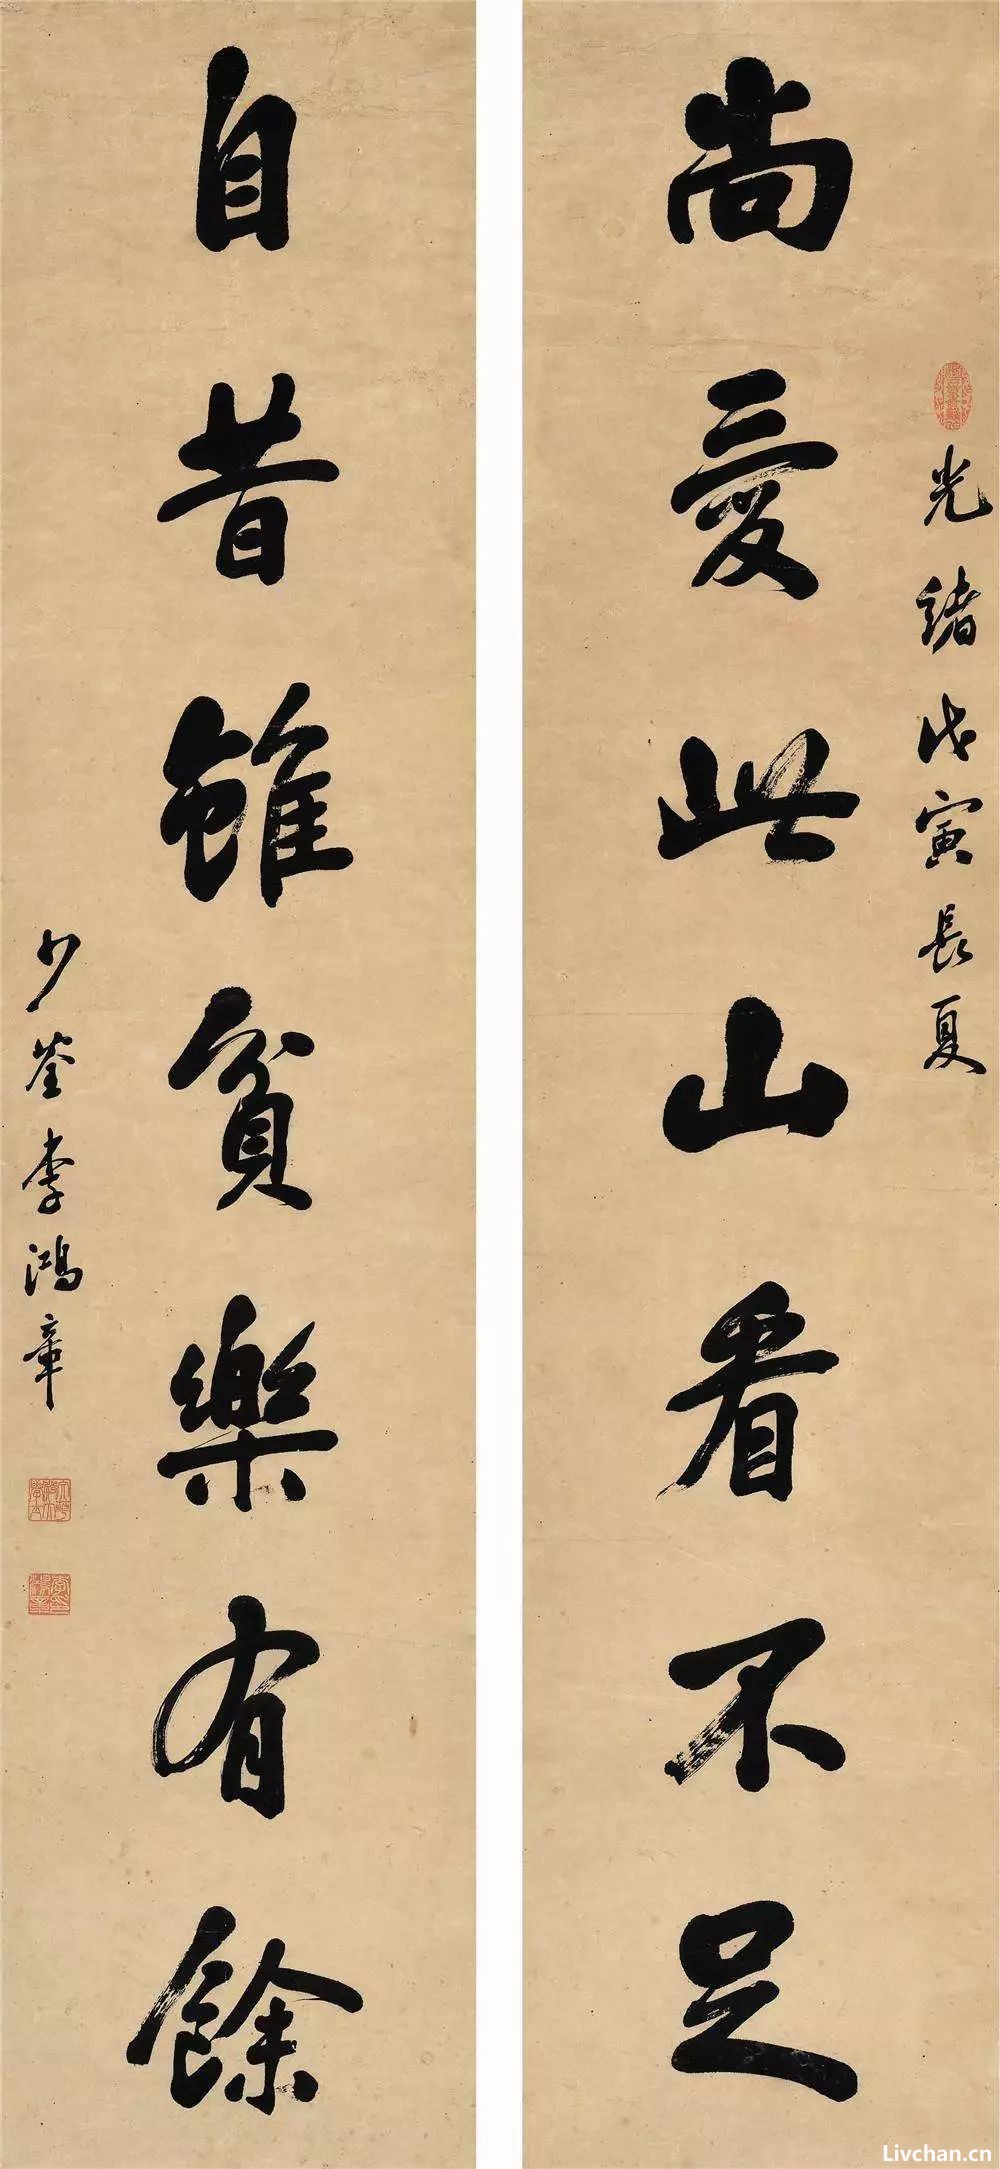 光緒戊寅長夏
尚愛此山看不足
自昔雖貧樂有餘
少荃李鴻章
Livchan.cn